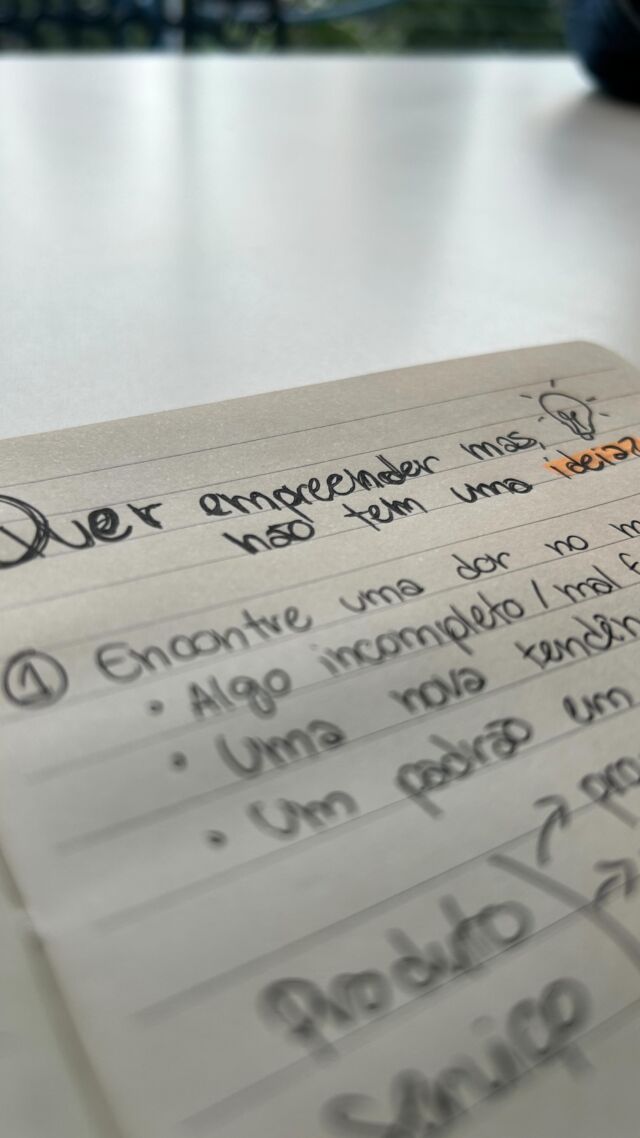 Quer empreender mas,
não tem uma ideia?
① Encontre uma dor no
• Algo incompleto/mal
• Uma nova
• Um padrão um
Produto
Serviço